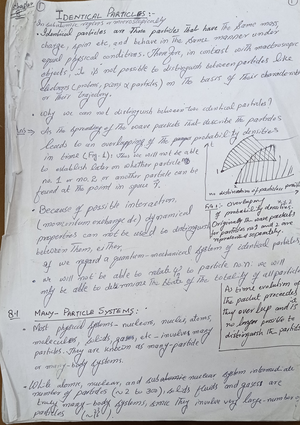 IDENTICAL PARTICLES:-
Identical particles are those particles that have the same mass,
charge, spin etc. and behave in the same manner under
equal physical conditions. Therefore, in contrast with macroscopic
objects, it is not possible to distinguish between particles like
on the basis of their
or their trajectory.
Why we can not distinguish between two identical particles?
the spreading of the wave packets that describe the particles
leads to an overlapping of the probability densities
in time (Fig. 1); thus we will not be able
to establish later on whether particle
no. 1 or no. 2 or another particle can be
found at the point in space r.
Because of possible interaction
(momentum exchange etc.) dynamical
properties can not be used to distinguish
between them, either.
If we regard a quantum-mechanical system of identical particles
we will not be able to relate to particle no. n. We will
only be able to determine the state of the totality of all particles
overlapping
of probability densities.
Originally the wave packets
for particles no. 1 and 2 are
represented separately.
As time evolution of
the packet proceeds
they overlap and it is
no longer possible to
distinguish the particles
8.1 MANY-PARTICLE SYSTEMS:-
Most physical systems - nucleons, nuclei, atoms,
molecules, solids, gases, etc - involves many
particles. They are known as many-particle
or many-body systems.
While atomic, nuclear, and subatomic nuclear system
number of particles (~2 to 300), solids fluids and gases are
truly many-body systems, since they involve very large number of
particles